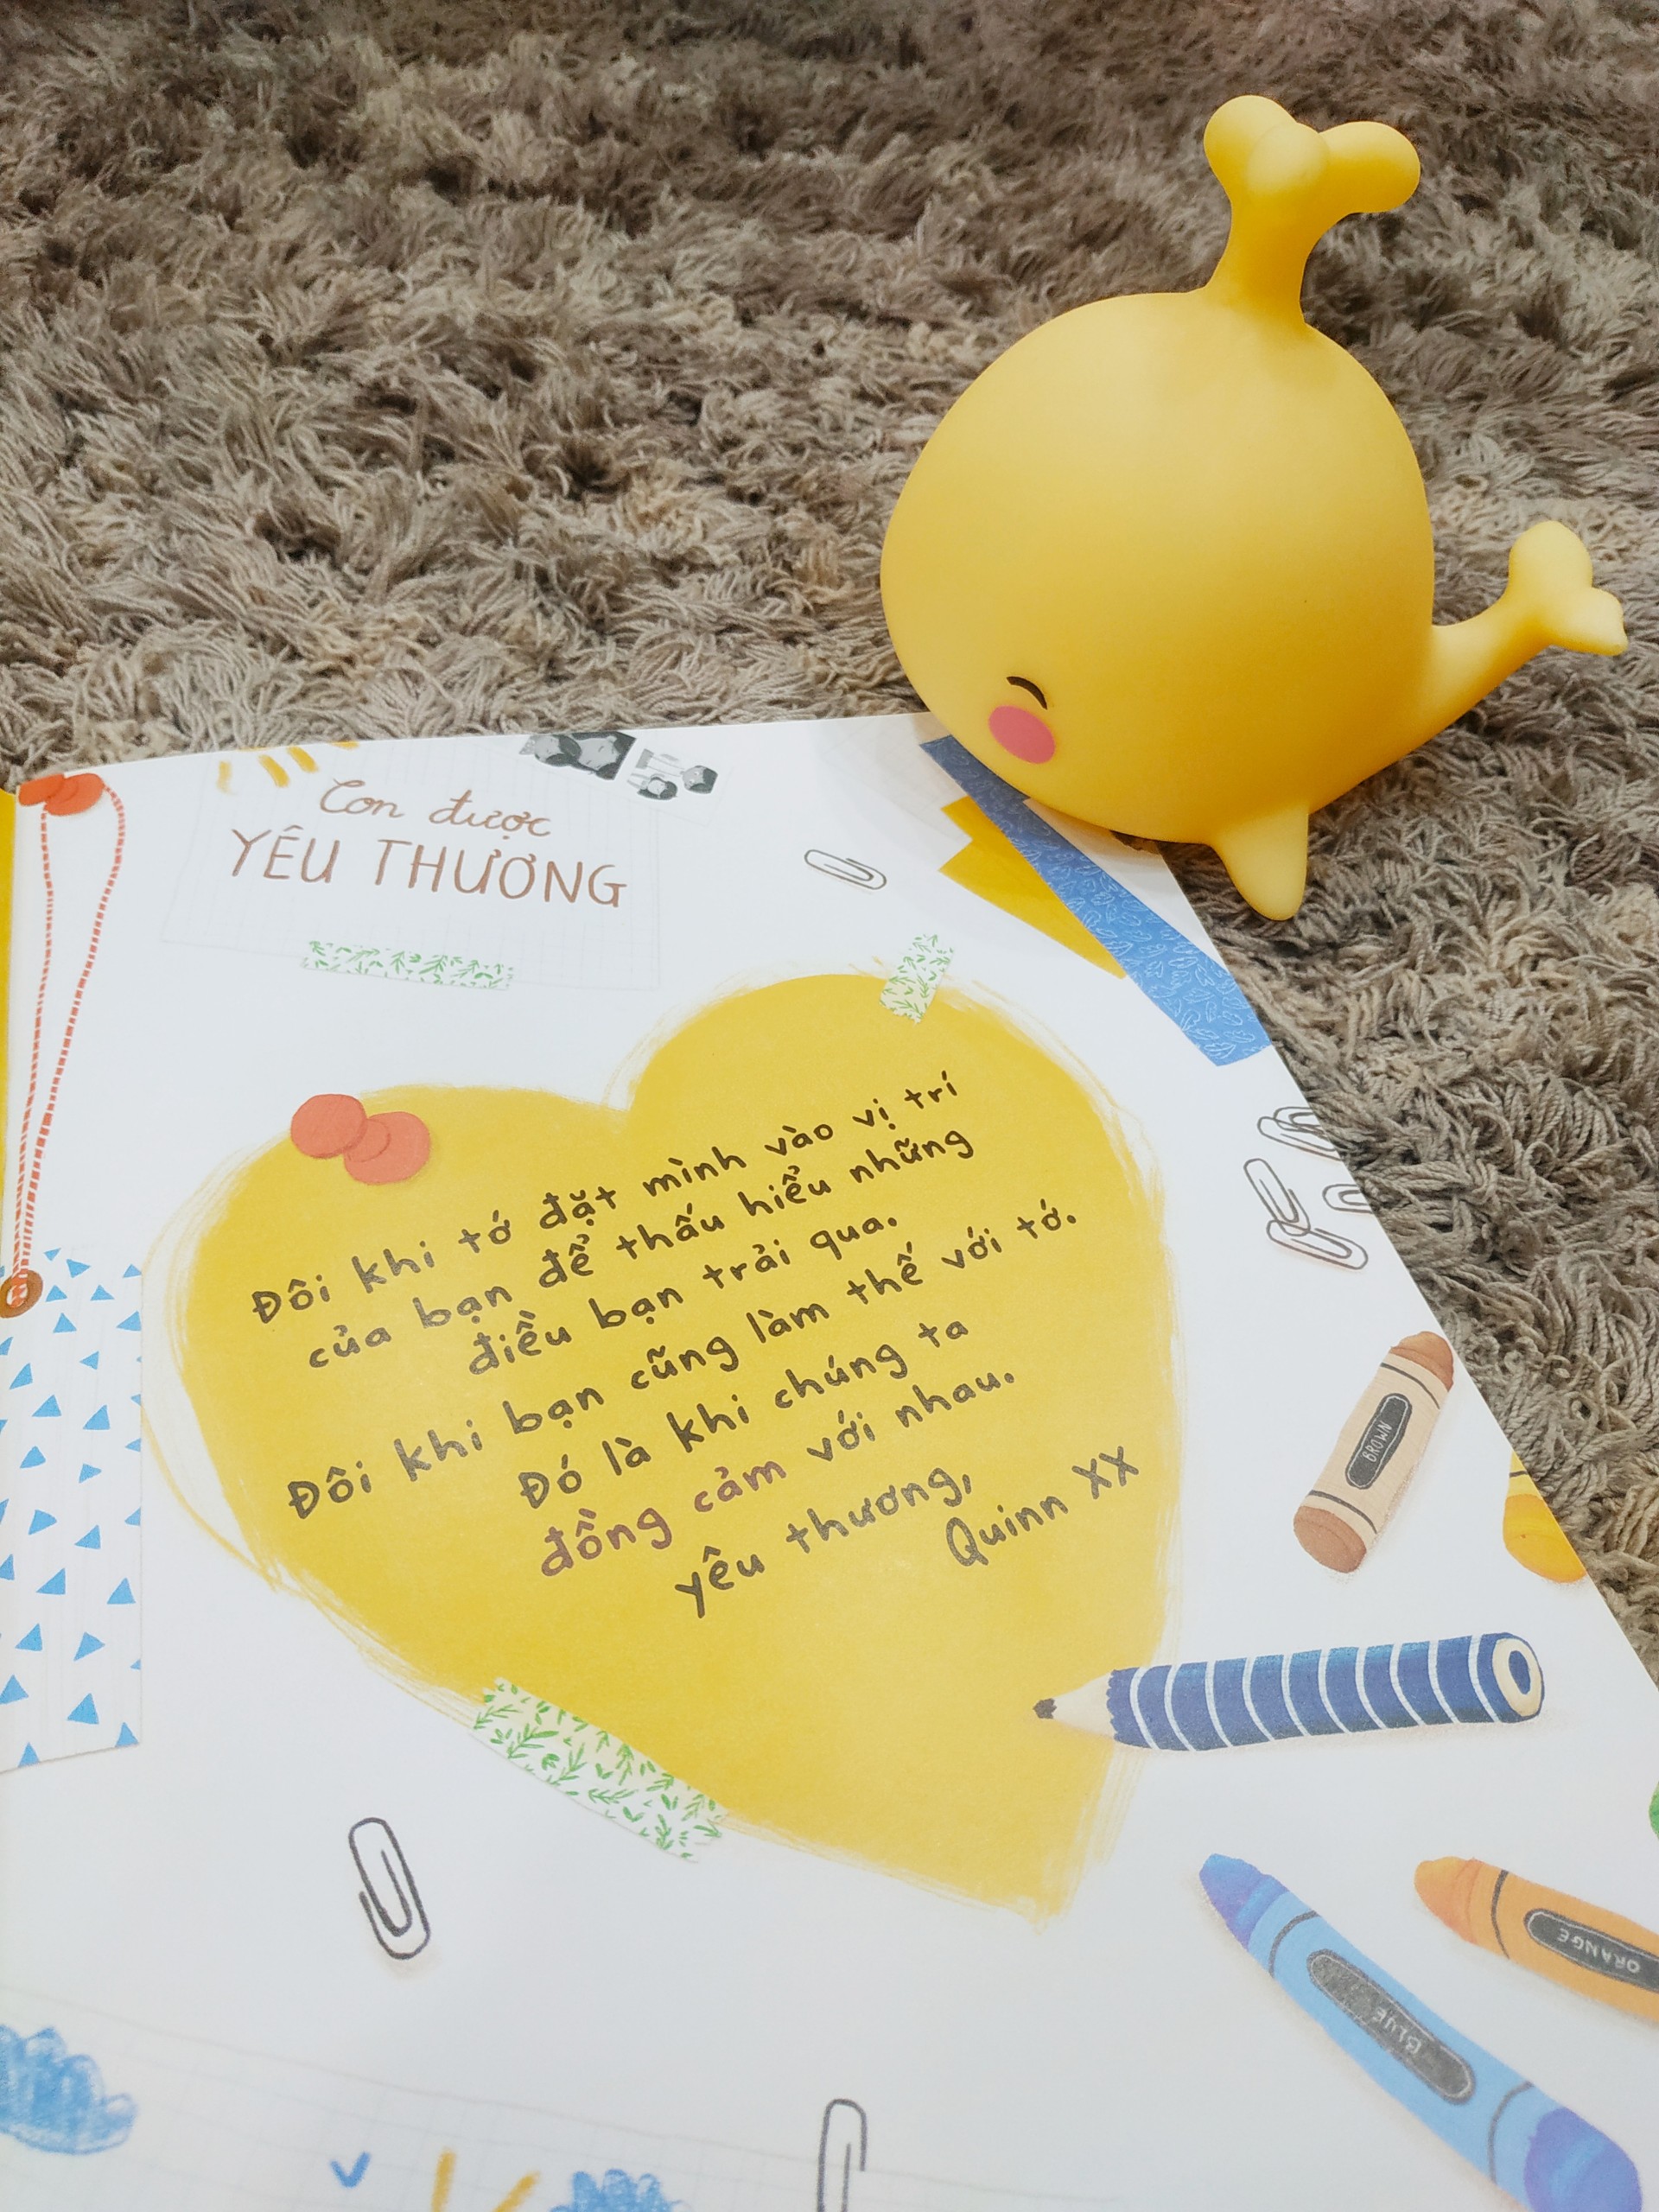 Con được
YÊU THƯƠNG
Đôi khi tớ đặt mình vào vị trí
của bạn để thấu hiểu những
điều bạn trải qua.
Đôi khi bạn cũng làm thế với tớ.
Đó là khi chúng ta
đồng cảm với nhau.
Yêu thương,
Quinn XX
BROWN
ORANGE
BLUE